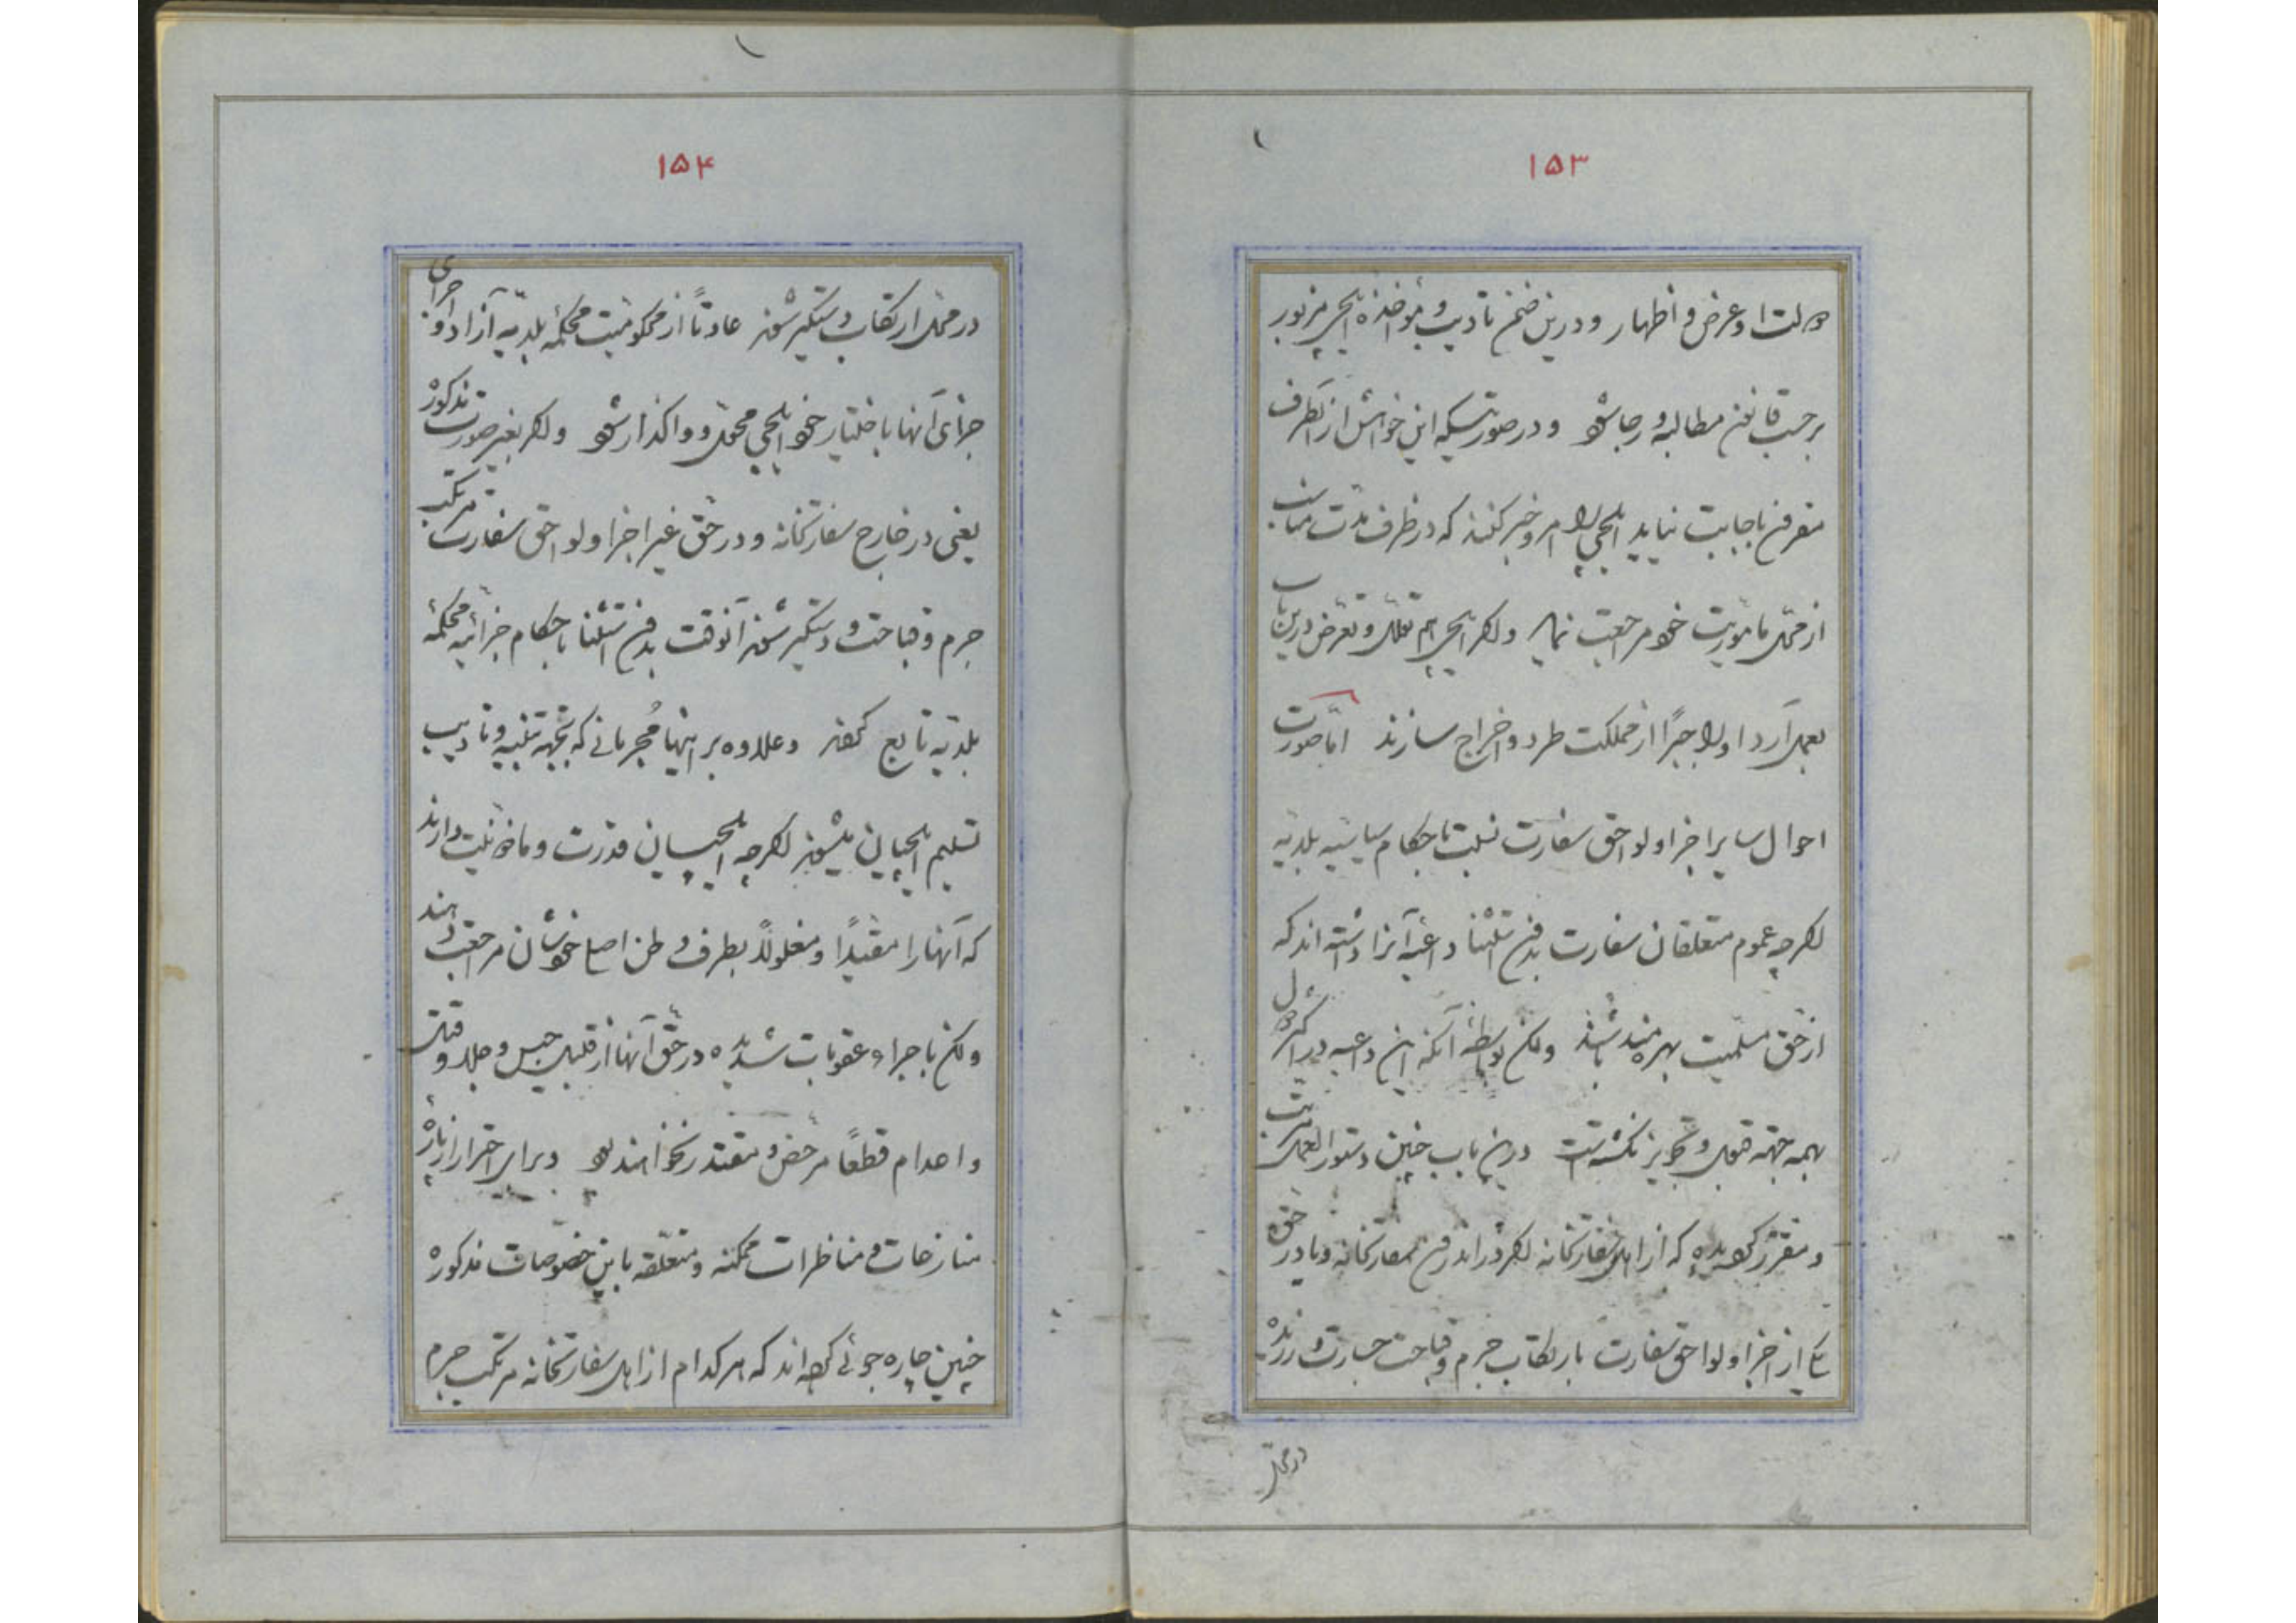 ۱۵۳
دولت او عرض و اظهار و درین ضمن تادیب و مؤاخذه ایلچی مزبور
بر حسب قانون مطالبه و رجا شود و در صورتیکه این خواهش از آنطرف
مقرون باجابت نیاید ایلچی را امر و خبر کنند که در ظرف مدت مناسب
از محل مأموریت خود مراجعت نماید و اگر ایلچی هم تعلل و تعرض درین باب
بعمل آرد او را جبراً از مملکت طرد و اخراج سازند اما صورت
احوال سایر اجزا و لواحق سفارت نسبت باحکام سیاسیه بلدیه
اگرچه عموم متعلقان سفارت بدون استثنا داعیه آنرا داشته اند که
از حق مسلمیت بهره مند باشند ولکن بواسطه آنکه این داعیه در اکثر دول
بهمه جهته قبول و تجویز نگشته است درین باب چنین دستور العمل مرتب
و مقرر گردیده که از اهل سفارتخانه اگر در اندرون سفارتخانه و یا در حق
یکی از اجزا و لواحق سفارت بارتکاب جرم و قباحت جسارت ورزنده
در محل
۱۵۴
در محل ارتکاب دستگیر شوند عادتاً از محکومیت محکمه بلدیه آزاد و اجرای
جزای آنها باختیار خود ایلچی محول و واگذار شود و اگر بغیر صورت مذکور
یعنی در خارج سفارتخانه و در حق غیر اجزا و لواحق سفارت مرتکب
جرم و قباحت و دستگیر شوند آنوقت بدون استثنا باحکام جزائیه محکمه
بلدیه تابع گردند و علاوه بر اینها مجرمانی که بجهه تنبیه و تادیب
تسلیم ایلچیان میشوند اگرچه ایلچیان قدرت و ماذونیت دارند
که آنها را مقیداً و مغلولاً بطرف وطن اصلی خودشان مراجعت دهند
ولکن باجراء عقوبات شدیده در حق آنها از قبیل حبس و جلد و قتل
و اعدام قطعاً مرخص و مقتدر نخواهند بود و برای احتراز از پاره
منازعات و مناظرات ممکنه و متعلقه باین خصوصات مذکوره
چنین چاره جوئی کرده اند که هر کدام از اهل سفارتخانه مرتکب جرم